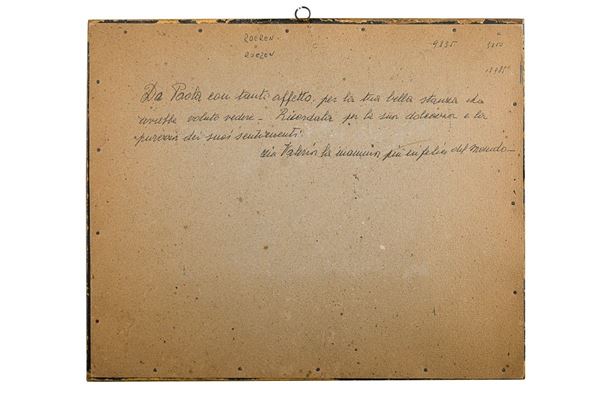 ROEREN
ROEREN
9835
Da Paola con tanto affetto. per la tua bella stanza che
avrebbe voluto vedere - Ricordala per la sua dolcezza e la
purezza dei suoi sentimenti.
zia Valeria la mamma più infelice del mondo -